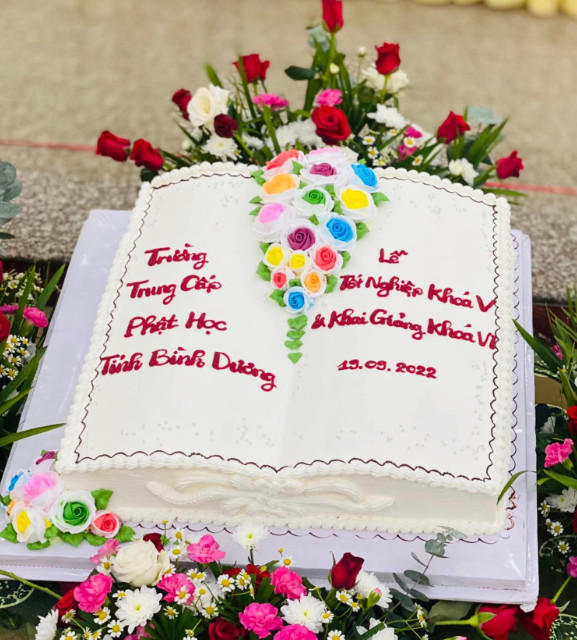 Trường
Trung Cấp
Phật Học
Tỉnh Bình Dương
Lễ
Tốt Nghiệp Khoá V
& Khai Giảng Khoá VI
19.09.2022